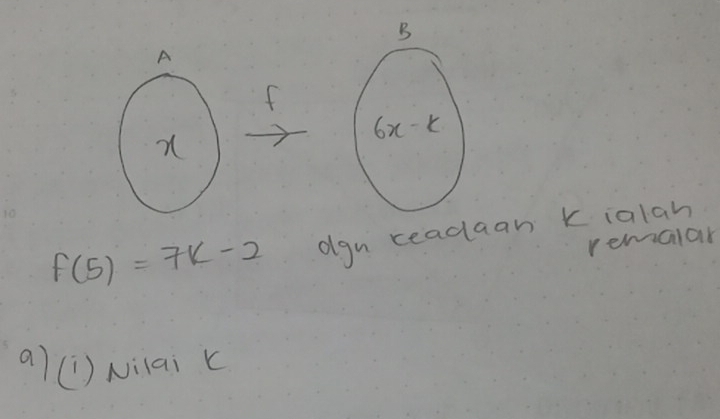 A
B
f
x
6x - k
f(5) = 7k - 2 dgn keadaan k ialah
pemalar
a) (i) Nilai k